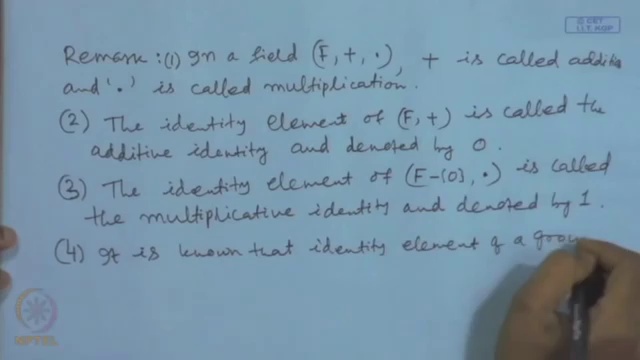 © CET
I.I.T. KGP
Remark : (1) In a field (F, +, ·), + is called additive
and '·' is called multiplication.
(2) The identity element of (F, +) is called the
additive identity and denoted by 0.
(3) The identity element of (F-{0}, ·) is called
the multiplicative identity and denoted by 1.
(4) It is known that identity element of a grou
NPTEL